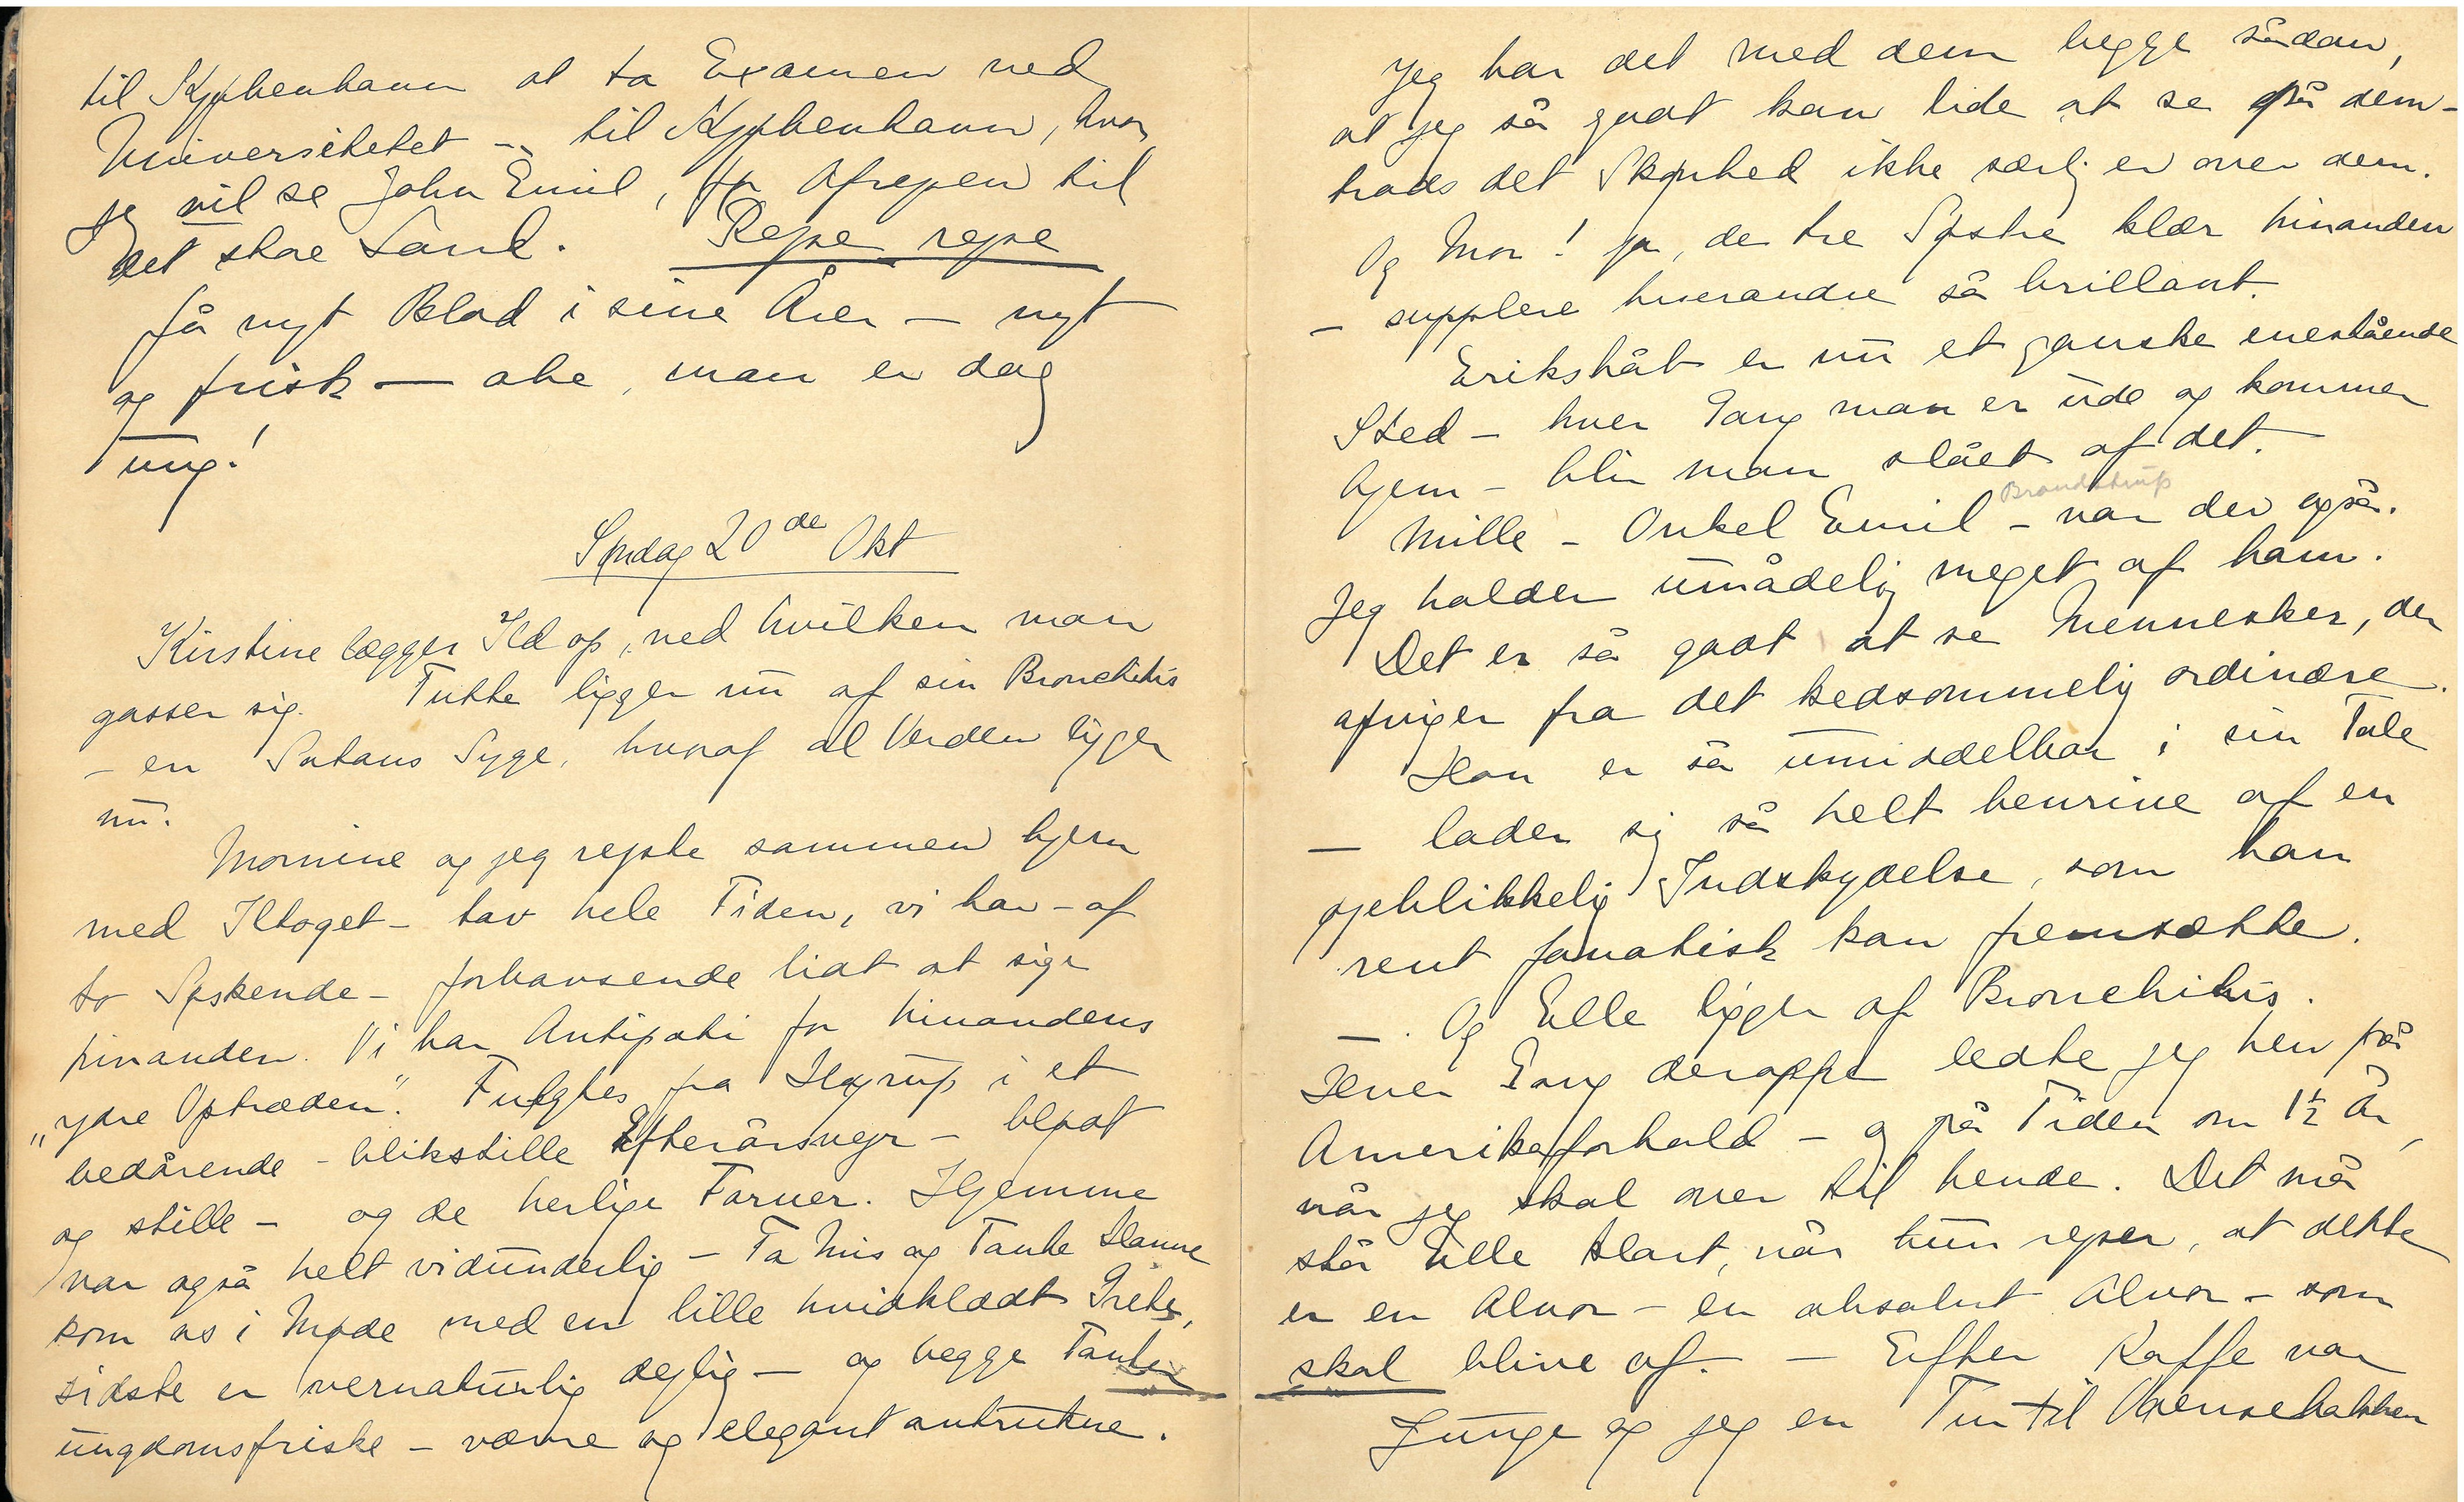 til Kjøbenhavn at ta Examen ved
Universitetet – til Kjøbenhavn, hvor
jeg vil se John Emil, før Afrejsen til
det store Land. Rejse rejse
få nyt Blod i sine Årer – nyt
og frisk – ahe, man er dog
ung!
Søndag 20de Okt
Kirstine lægger Ild op, ved hvilken man
gasser sig. Tutte ligger nu af sin Bronchitis
– en Satans Syge, hvoraf al Verden ligger
nu.
Mornine og jeg rejste sammen hjem
med Iltoget – tav hele Tiden, vi har – af
to Søskende – forbavsende lidt at sige
hinanden. Vi har Antipati for hinandens
„ydre Optræden". Fulgtes fra Højrup i et
bedårende – blikstille Efterårsvejr – blødt
og stille – og de herlige Farver. Hjemme
var også helt vidunderlig – Ta Mis og Tante Hanne
kom os i Møde med en lille hvidklædt Grete,
sidste er overnaturlig dejlig – og begge Tanter
ungdomsfriske – varme og elegant antrukne.
Jeg har det med dem begge sådan,
at jeg så godt kan lide at se på dem –
trods det Skønhed ikke særlig er over dem.
Og Mor! ja, de tre Søstre klær hinanden
– supplere hverandre så brillant.
Erikshåb er nu et ganske enestående
Sted – hver Gang man er ude og kommer
hjem – blir man slået af det.
Brandstrup
Mille – Onkel Emil – var der også.
Jeg holder umådelig meget af ham.
Det er så godt at se Mennesker, der
afviger fra det kedsommelig ordinære.
Han er så umiddelbar i sin Tale
– lader sig så helt henrive af en
øjeblikkelig Indskydelse, som han
rent fanatisk kan fremsætte.
– . Og Elle ligger af Bronchitis.
Hver Gang deroppe ledte jeg hen på
Amerikaforhold – og på Tiden om 1½ År,
når jeg skal over til hende. Det må
stå Elle klart, når hun rejser, at dette
er en Alvor – en absolut Alvor – som
skal blive af. – Efter Kaffe var
Junge og jeg en Tur til Odensebakken